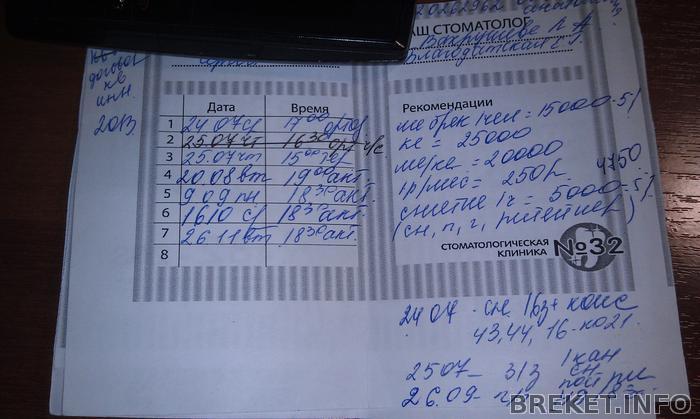 АШ СТОМАТОЛОГ
Вахрушева
Благодатская
договор
кв
инн.
2013
Дата Время
1 24 07 ср 17 00 ортод
2 25.07 чт 16 30 орт
3 25.07 чт 15 00 тер
4 20.08 вт 19 00 акт.
5 9 09 пн 18 30 акт.
6 16 10 ср 18 30 акт.
7 26 11 вт 18 30 акт.
8
Рекомендации
ме брек 1 чел = 15000-5%
ке = 25000
ме/ке = 20000
1р/мес = 250р.
4750
снятие 1ч = 5000-5%
(сн, п, г, ретейнер)
СТОМАТОЛОГИЧЕСКАЯ
КЛИНИКА №32
24 07 - сн. 1 вз + конс
43, 44, 16 -
25 07 - 3/3 1 кан
сн
26.09 -
BREKET.INFO